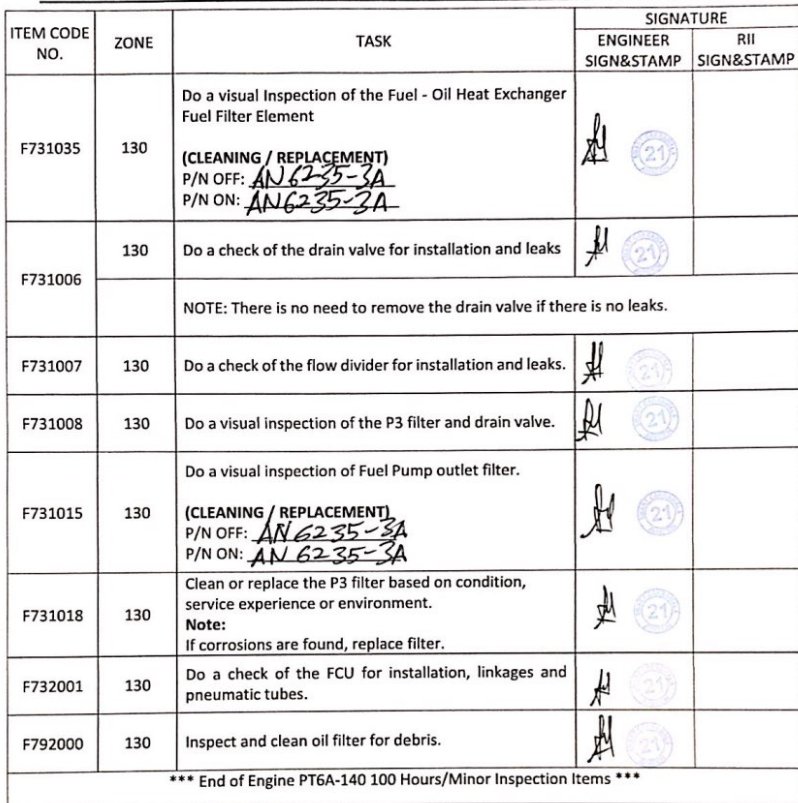 SIGNATURE
ITEM CODE NO.
ZONE
TASK
ENGINEER SIGN&STAMP
RII SIGN&STAMP
F731035
130
Do a visual Inspection of the Fuel - Oil Heat Exchanger
Fuel Filter Element
(CLEANING / REPLACEMENT)
P/N OFF: AN6235-3A
P/N ON: AN6235-3A
21
F731006
130
Do a check of the drain valve for installation and leaks
21
NOTE: There is no need to remove the drain valve if there is no leaks.
F731007
130
Do a check of the flow divider for installation and leaks.
21
F731008
130
Do a visual inspection of the P3 filter and drain valve.
21
F731015
130
Do a visual inspection of Fuel Pump outlet filter.
(CLEANING / REPLACEMENT)
P/N OFF: AN6235-3A
P/N ON: AN 6235-3A
21
F731018
130
Clean or replace the P3 filter based on condition,
service experience or environment.
Note:
If corrosions are found, replace filter.
21
F732001
130
Do a check of the FCU for installation, linkages and
pneumatic tubes.
21
F792000
130
Inspect and clean oil filter for debris.
21
*** End of Engine PT6A-140 100 Hours/Minor Inspection Items ***